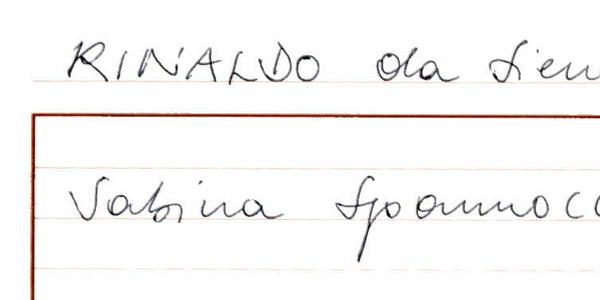 RINALDO da Sien
Sabina Spannocc